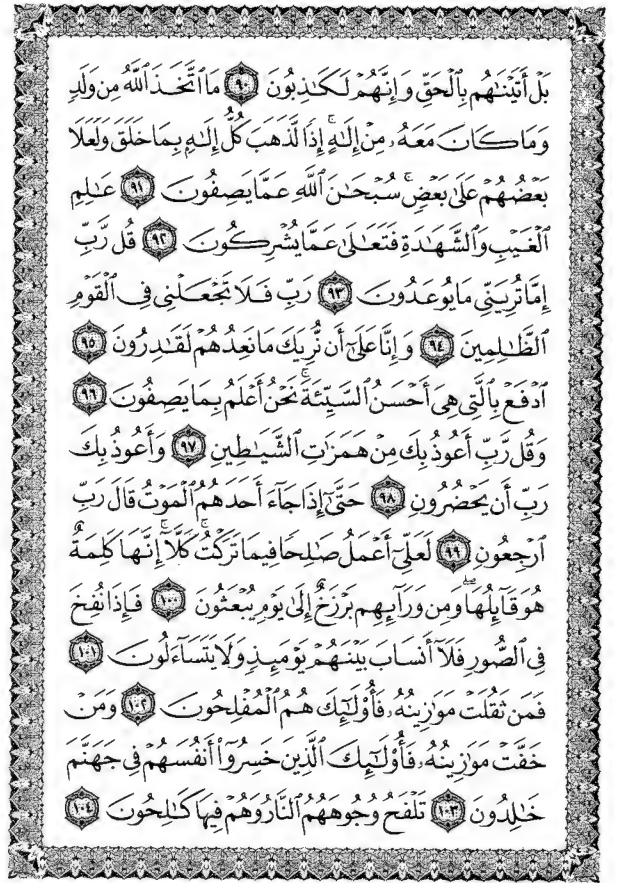 بَلْ أَتَيْنَـٰهُم بِٱلْحَقِّ وَإِنَّهُمْ لَكَـٰذِبُونَ ٩٠ مَا ٱتَّخَذَ ٱللَّهُ مِن وَلَدٍ
وَمَا كَانَ مَعَهُۥ مِنْ إِلَـٰهٍ ۚ إِذًا لَّذَهَبَ كُلُّ إِلَـٰهٍۭ بِمَا خَلَقَ وَلَعَلَا
بَعْضُهُمْ عَلَىٰ بَعْضٍ ۚ سُبْحَـٰنَ ٱللَّهِ عَمَّا يَصِفُونَ ٩١ عَـٰلِمِ
ٱلْغَيْبِ وَٱلشَّهَـٰدَةِ فَتَعَـٰلَىٰ عَمَّا يُشْرِكُونَ ٩٢ قُل رَّبِّ
إِمَّا تُرِيَنِّى مَا يُوعَدُونَ ٩٣ رَبِّ فَلَا تَجْعَلْنِى فِى ٱلْقَوْمِ
ٱلظَّـٰلِمِينَ ٩٤ وَإِنَّا عَلَىٰٓ أَن نُّرِيَكَ مَا نَعِدُهُمْ لَقَـٰدِرُونَ ٩٥
ٱدْفَعْ بِٱلَّتِى هِىَ أَحْسَنُ ٱلسَّيِّئَةَ ۚ نَحْنُ أَعْلَمُ بِمَا يَصِفُونَ ٩٦
وَقُل رَّبِّ أَعُوذُ بِكَ مِنْ هَمَزَٰتِ ٱلشَّيَـٰطِينِ ٩٧ وَأَعُوذُ بِكَ
رَبِّ أَن يَحْضُرُونِ ٩٨ حَتَّىٰٓ إِذَا جَآءَ أَحَدَهُمُ ٱلْمَوْتُ قَالَ رَبِّ
ٱرْجِعُونِ ٩٩ لَعَلِّىٓ أَعْمَلُ صَـٰلِحًا فِيمَا تَرَكْتُ ۚ كَلَّآ ۚ إِنَّهَا كَلِمَةٌ
هُوَ قَآئِلُهَا ۖ وَمِن وَرَآئِهِم بَرْزَخٌ إِلَىٰ يَوْمِ يُبْعَثُونَ ١٠٠ فَإِذَا نُفِخَ
فِى ٱلصُّورِ فَلَآ أَنسَابَ بَيْنَهُمْ يَوْمَئِذٍ وَلَا يَتَسَآءَلُونَ ١٠١
فَمَن ثَقُلَتْ مَوَٰزِينُهُۥ فَأُو۟لَـٰٓئِكَ هُمُ ٱلْمُفْلِحُونَ ١٠٢ وَمَنْ
خَفَّتْ مَوَٰزِينُهُۥ فَأُو۟لَـٰٓئِكَ ٱلَّذِينَ خَسِرُوٓا۟ أَنفُسَهُمْ فِى جَهَنَّمَ
خَـٰلِدُونَ ١٠٣ تَلْفَحُ وُجُوهَهُمُ ٱلنَّارُ وَهُمْ فِيهَا كَـٰلِحُونَ ١٠٤